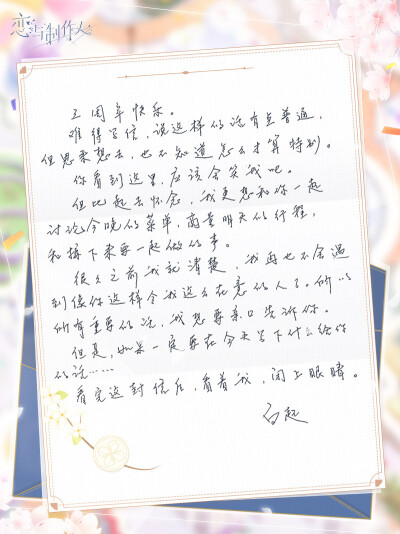 恋与制作人
五周年快乐。
难得写信，说这样的话有点普通，
但思来想去，也不知道怎么才算特别。
你看到这里，应该会笑我吧。
但比起去怀念，我更想和你一起
讨论今晚的菜单，商量明天的行程，
和接下来要一起做的事。
很久之前我就清楚，我再也不会遇
到像你这样令我这么在意的人了。所以
所有重要的话，我想要亲口告诉你。
但是，如果一定要在今天写下什么给你
的话……
看完这封信后，看着我，闭上眼睛。
白起